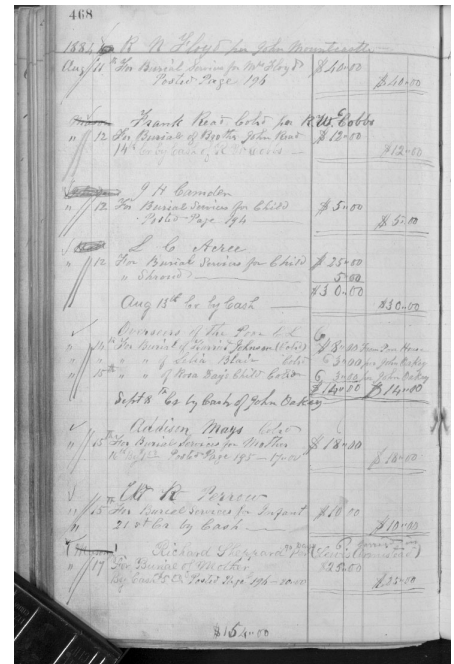 468
1884 R N Floyd per John
Aug 11th For Burial Service for Mrs Floyd $40-00
Posted Page 196 $40-00
Frank Read Cold per R. W. Cobbs
" 12 For Burial of Brother John Read $12-00
14th Cr by Cash $12-00
J H Camden
" 12 For Burial Services for Child $5-00
Posted Page 194 $5-00
L C Acree
" 12 For Burial Services for Child $25-00
" Shroud 5-00
$30-00
Aug 13th Cr by Cash $30-00
Overseers of the Poor
" 14th For Burial of Johnson (Cold) $8-00 From Poor House
" " " of Blair Cold 6 3-00 for John Oakey
" 15th " " of Rosa Days Child Cold 6 3-00 for John Oakey
$14-00 $14-00
Sept 8th Cr by Cash of John Oakey
Addison Mays Cold
" 15th For Burial Services for Mother $18-00
Posted Page 195 - 17-00 $18-00
W R Perrow
" 15th For Burial Services for Infant $10-00
" 21st Cr. by Cash $10-00
Richard Sheppard
" 17 For Burial of Mother $25-00
By Cash Posted Page 196 - $25-00
$154-00